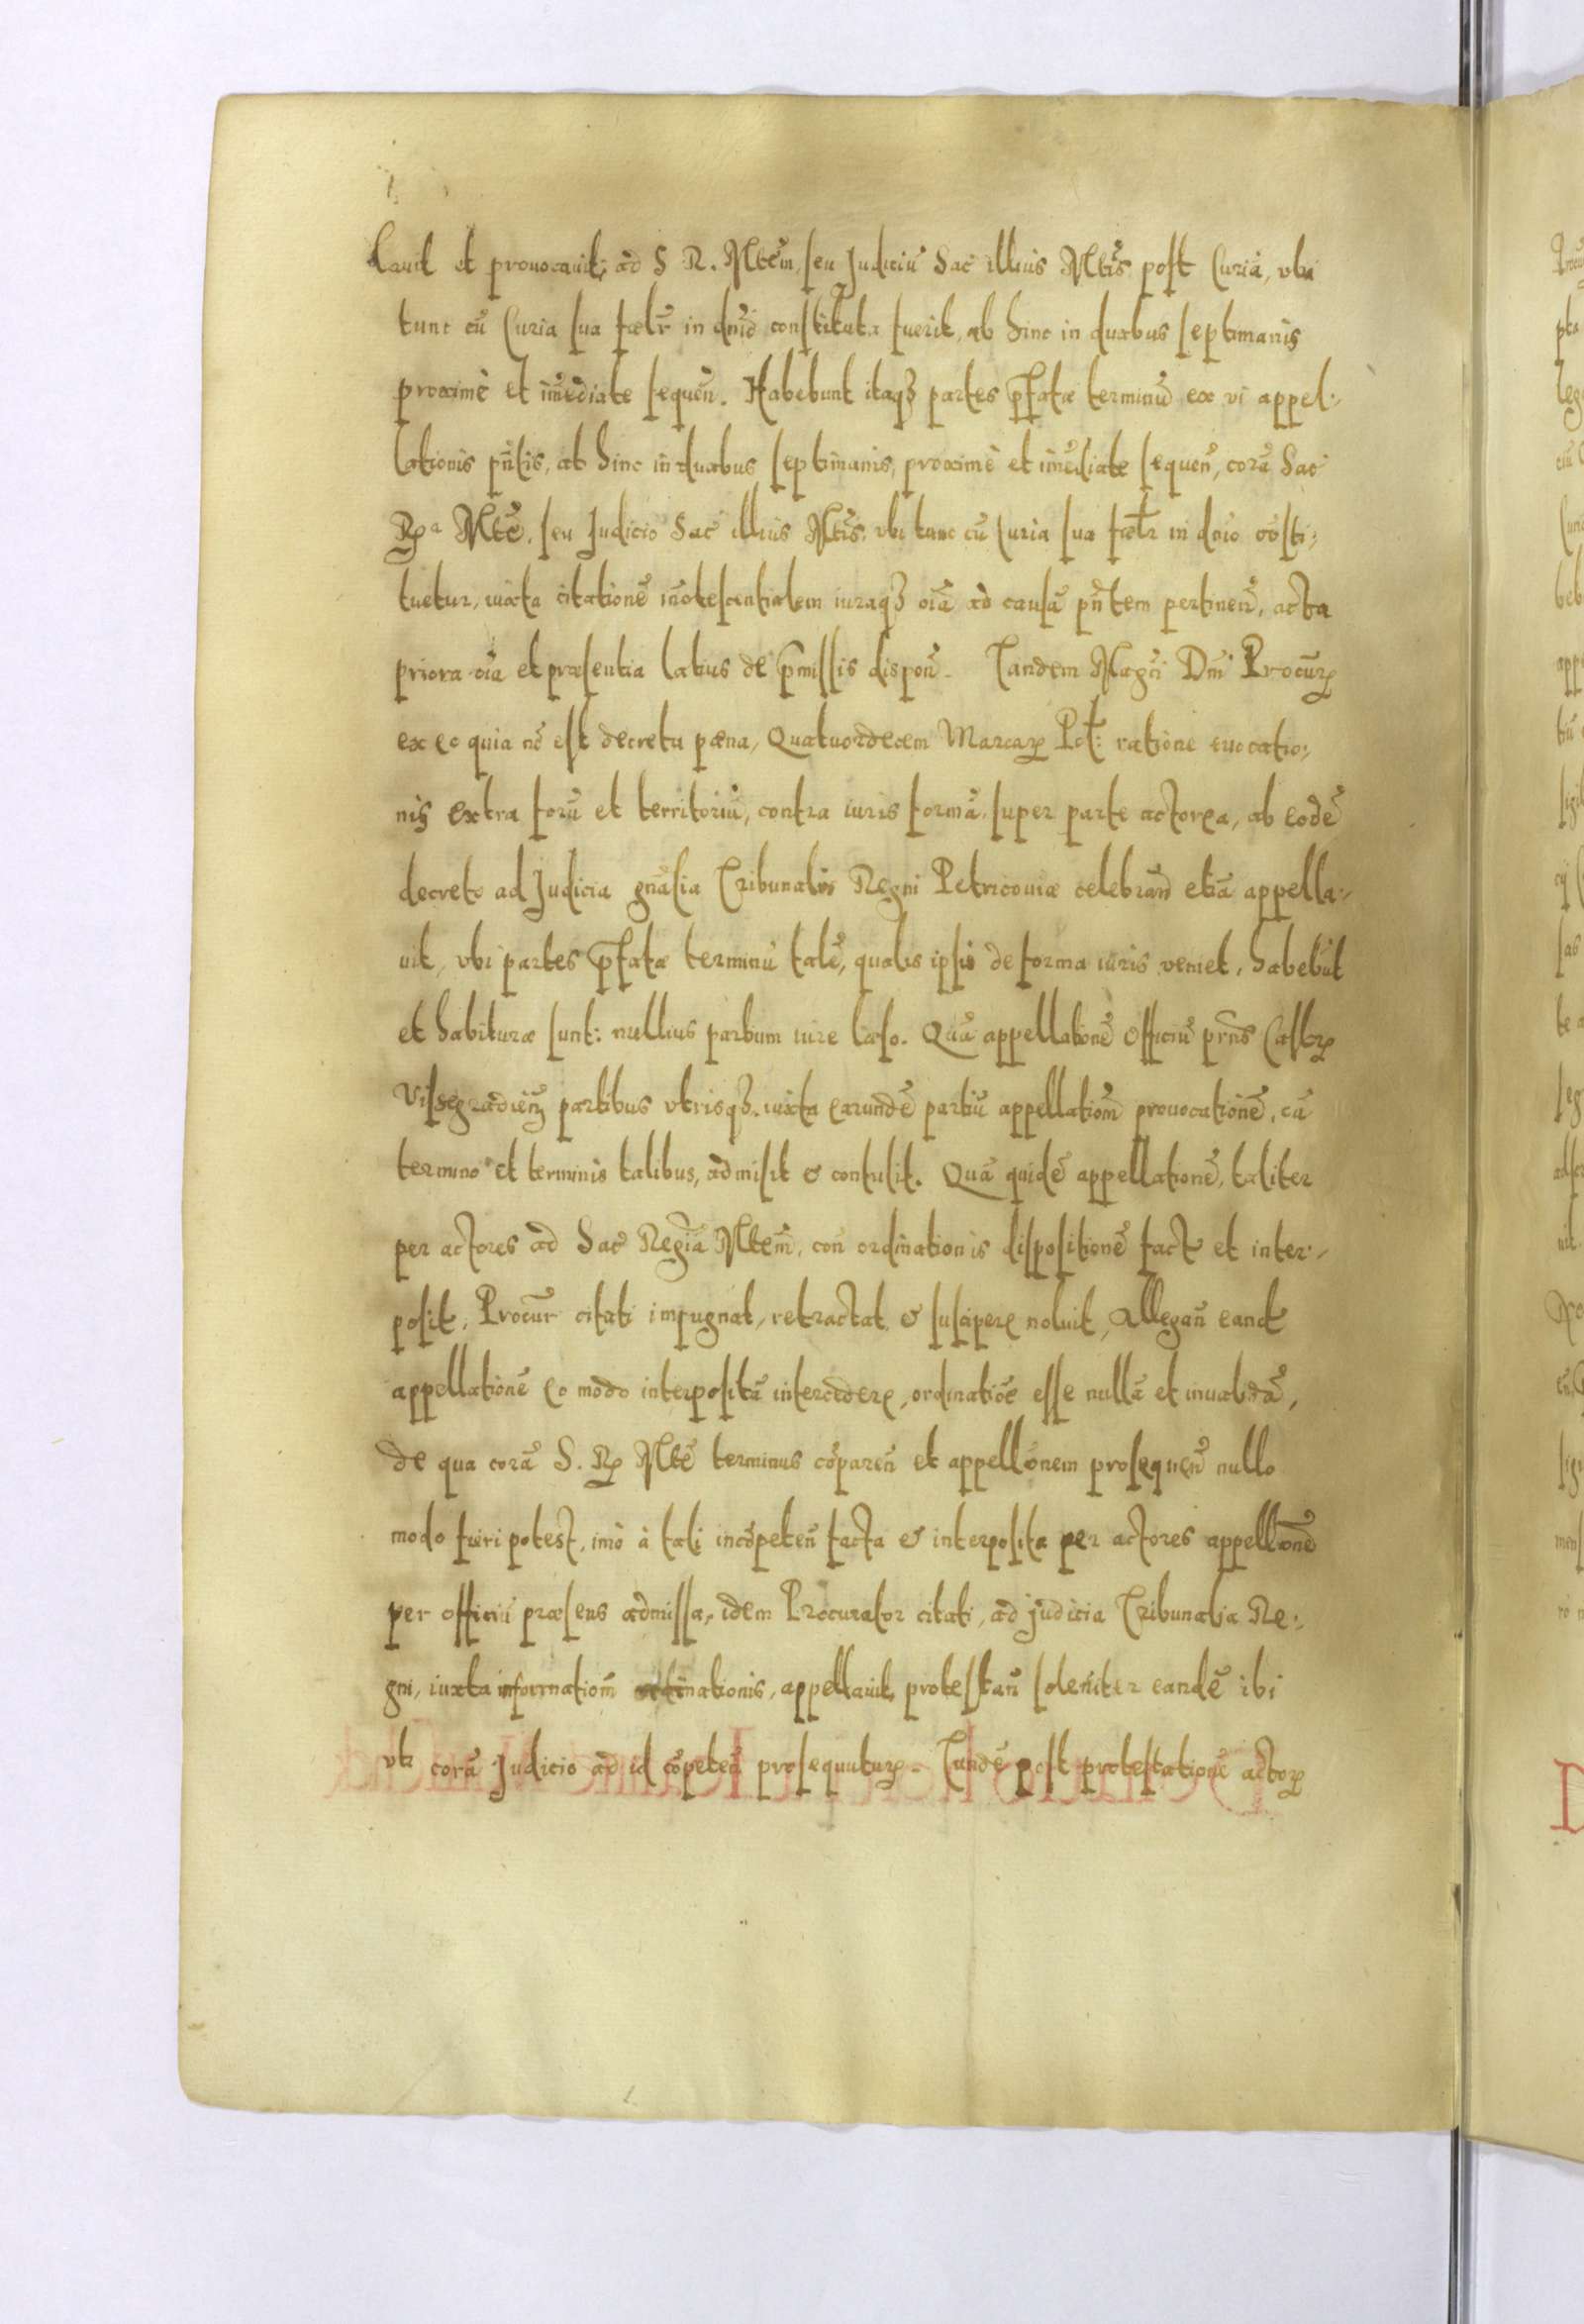 lauit et prouocauit, ad S R. Mtem, seu Judiciũ Sac illius Mtis post Curiã, vbi
tunc cũ Curia sua fælr in dnio constituta fuerit, ab hinc in duabus septimanis
proximè et im̃ediate sequeñ. Habebunt itaqȝ partes p̃fatæ terminũ ex vi appel:,
lationis pñtis, ab hinc in duabus septimanis, proximè et im̃ediate sequeñ, corã Sac
Ra Mte, seu Judicio Sac illius Mtis, vbi tunc cũ Curia sua fælr in dnio cõsti:,
tuetur, iuxta citationẽ iñotescentialem iuraqȝ oĩa ad causã pñtem pertineñ, acta
priora oĩa et præsentia latius de p̃missis dispoñ. Tandem Magci Dni Procur
ex eo quia nõ est decreta pæna, Quatuordecem Marcar Pol: ratione euocatio:,
nis extra forũ et territoriũ, contra iuris formã, super parte actorea, ab eodẽ
decreto ad Judicia gñalia Tribunalis Regni Petricouiæ celebrañ etiã appella:,
uit, vbi partes p̃fatæ terminũ talẽ, qualis ipsis de forma iuris veniet, habebũt
et habituræ sunt: nullius partium iure læso. Quã appellationẽ Officiũ prñs Castr
Vissegradieñ partibus vtrisqȝ, iuxta earundẽ partiũ appellatiom̃ prouocationẽ, cũ
termino et terminis talibus, admisit & contulit. Quã quidẽ appellationẽ, taliter
per actores ad Sac Regiã Mtem, coñ ordinationis dispositionẽ fact et inter:,
posit, Procur citati impugnat, retractat & suscipere noluit, Allegañ eand
appellationẽ eo modo interpositã intercedere, ordinatiõe esse nullã et inualidã,
de qua corã S. R Mte terminus cõpareñ et appellõnem prosequeñ nullo
modo fieri potest, imò à tali incõpeteñ facta & interposita per actores appellõne
per officiũ præsens admissa, idem Procurator citati, ad judicia Tribunalia Re:,
gni, iuxta informatiom̃ ordinationis, appellauit, protestañ soleñiter eandẽ ibi
vti corã Judicio ad id cõpeteñ prosequutur. Tandẽ post protestationẽ actor